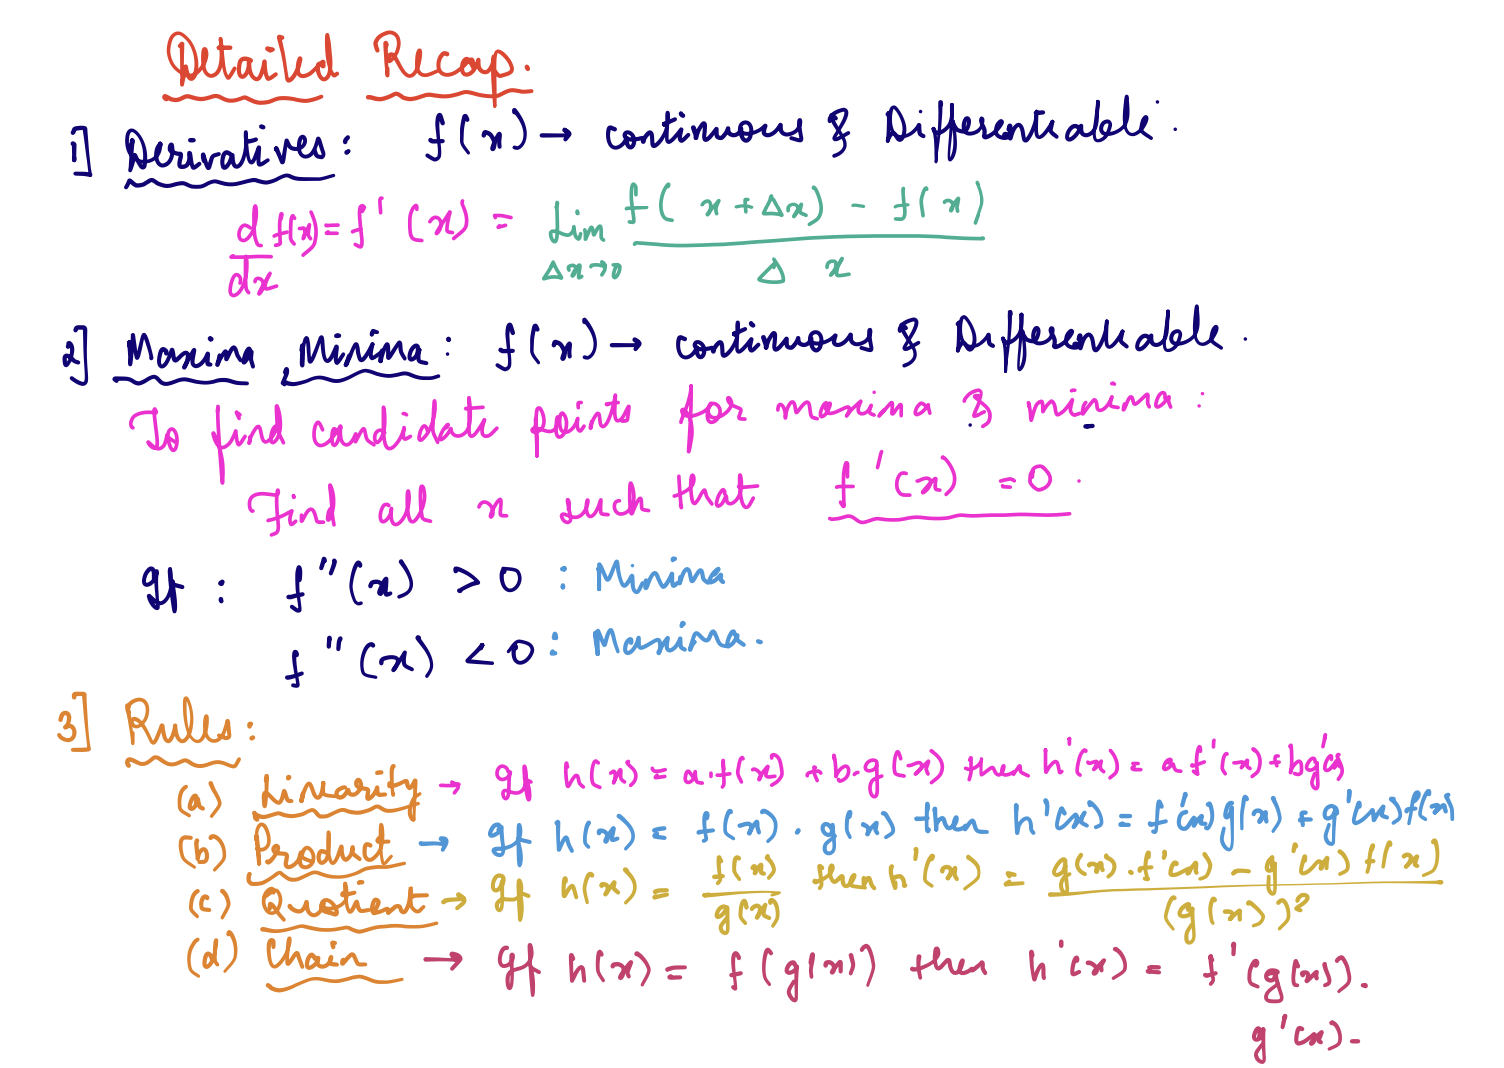 Detailed Recap.
1] Derivatives: f(x) → continuous & Differentiable.
d/dx f(x) = f'(x) = Lim Δx→0 f(x+Δx) - f(x) / Δx
2] Maxima Minima: f(x) → continuous & Differentiable.
To find candidate points for maxima & minima:
Find all x such that f'(x) = 0.
If: f''(x) > 0 : Minima
f''(x) < 0 : Maxima.
3] Rules:
(a) Linearity → If h(x) = a.f(x) + b.g(x) then h'(x) = a f'(x) + bg'(x)
(b) Product → If h(x) = f(x) . g(x) then h'(x) = f'(x)g(x) + g'(x)f(x)
(c) Quotient → If h(x) = f(x)/g(x) then h'(x) = g(x).f'(x) - g'(x)f(x) / (g(x))²
(d) Chain → If h(x) = f(g(x)) then h'(x) = f'(g(x)).
g'(x).